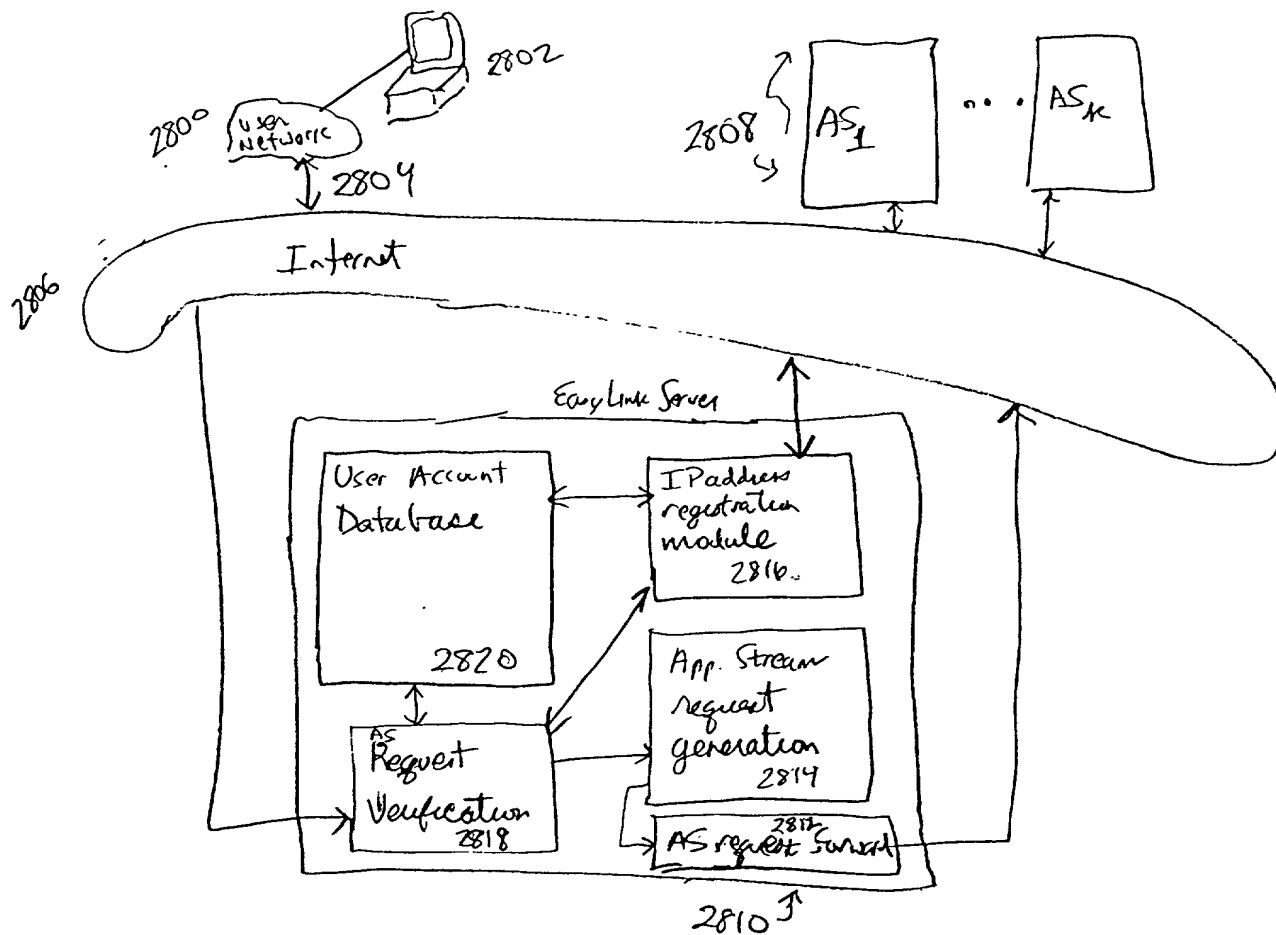 2802
2800
User
Network
2804
2808
AS1
...
ASK
2806
Internet
EasyLink Server
User Account
Database
2820
IP address
registration
module
2816
App. Stream
request
generation
2814
AS
Request
Verification
2818
2812
AS request forward
2810